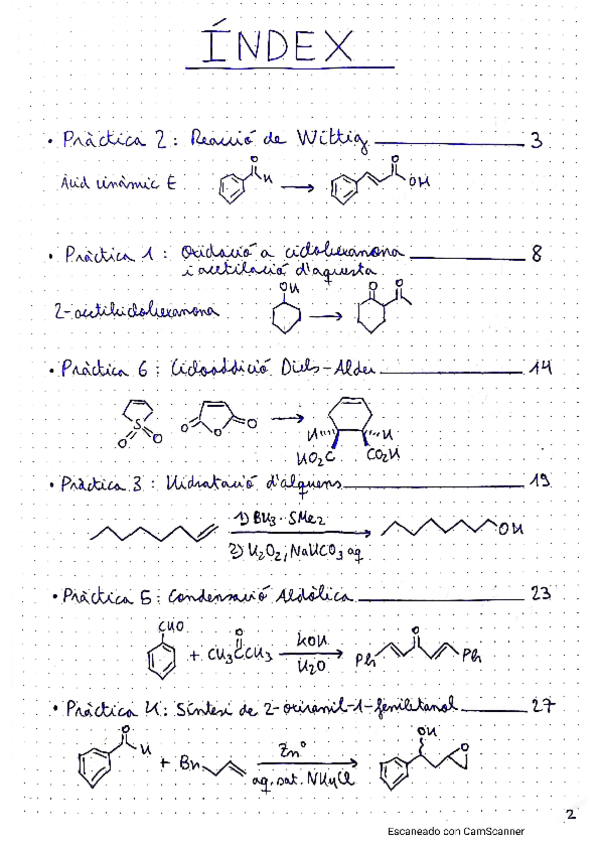 ÍNDEX
• Pràctica 2: Reacció de Wittig 3
Àcid cinàmic E
O
H
O
OH
• Pràctica 1: Oxidació a ciclohexanona 8
i acetilació d'aquesta
2-acetilciclohexanona
OH
O O
• Pràctica 6: Cicloaddició Diels-Alder 14
S
O O
O O O
H H
HO2C CO2H
• Pràctica 3: Hidratació d'alquens 19
1) BH3·SMe2
2) H2O2; NaHCO3 aq
OH
• Pràctica 5: Condensació Aldòlica 23
CHO
+ CH3CCH3
O
KOH
H2O
O
Ph Ph
• Pràctica 4: Síntesi de 2-oxiranil-1-feniletanol 27
O
H
+ Br
Zn°
aq. sat. NH4Cl
OH
O
2
Escaneado con CamScanner